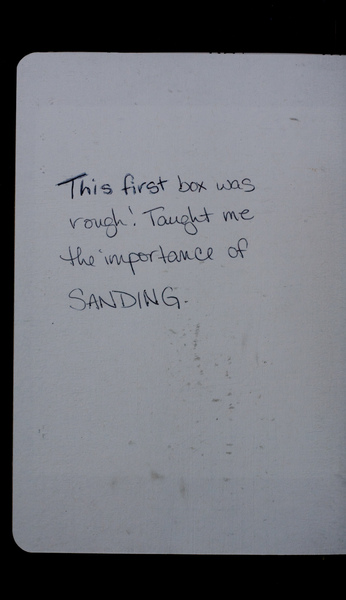 This first box was
rough! Taught me
the importance of
SANDING.